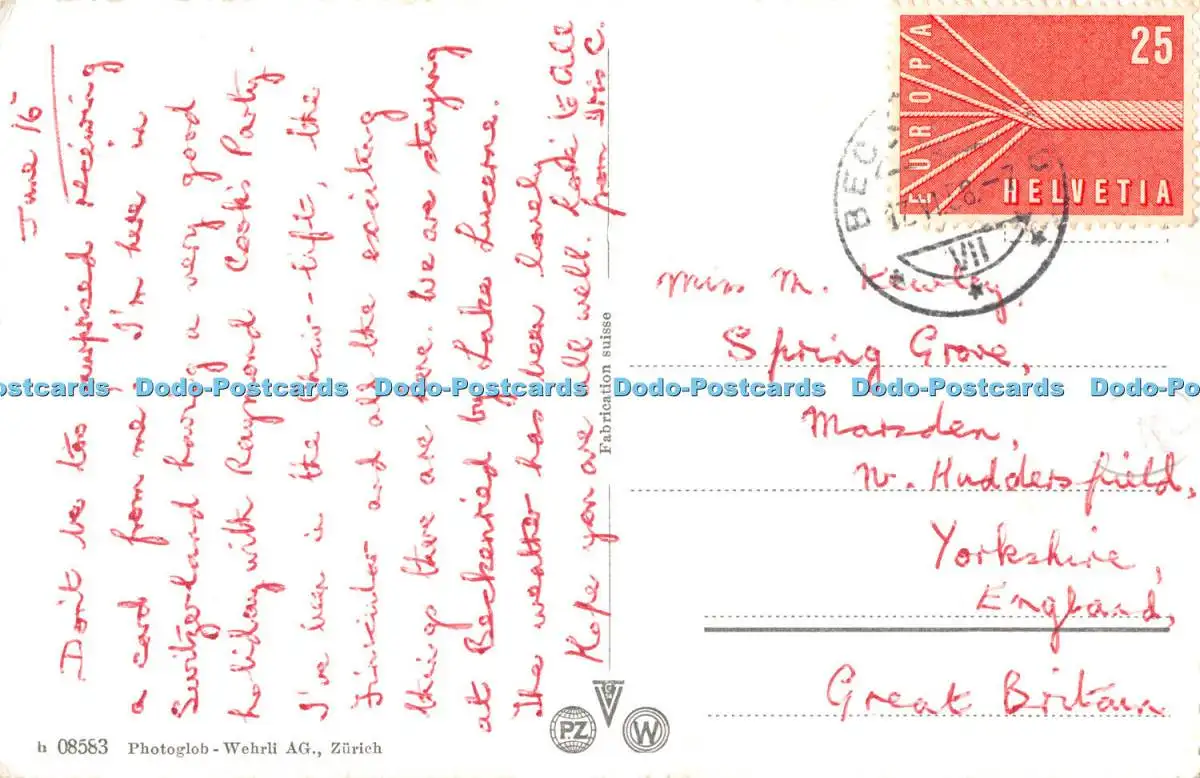 June 16
Don't be too surprised receiving
a card from me I'm here in
Switzerland having a very good
holiday with Raymond Cook's Party.
I've been in the Chair-lift, the
Finicular and all the exciting
things there are here. We are staying
at Beckenried by Lake Lucerne.
The weather has been lovely
Hope you are all well. Look to all
from Iris C.
Fabrication suisse
EUROPA
25
HELVETIA
BEC
VII
Miss M. Kewley,
Spring Grove,
Marsden,
Nr. Huddersfield,
Yorkshire,
England,
Great Britain
h 08583 Photoglob-Wehrli AG., Zürich
P.Z.
W
Dodo-Postcards Dodo-Postcards Dodo-Postcards Dodo-Postcards Dodo-Postcards